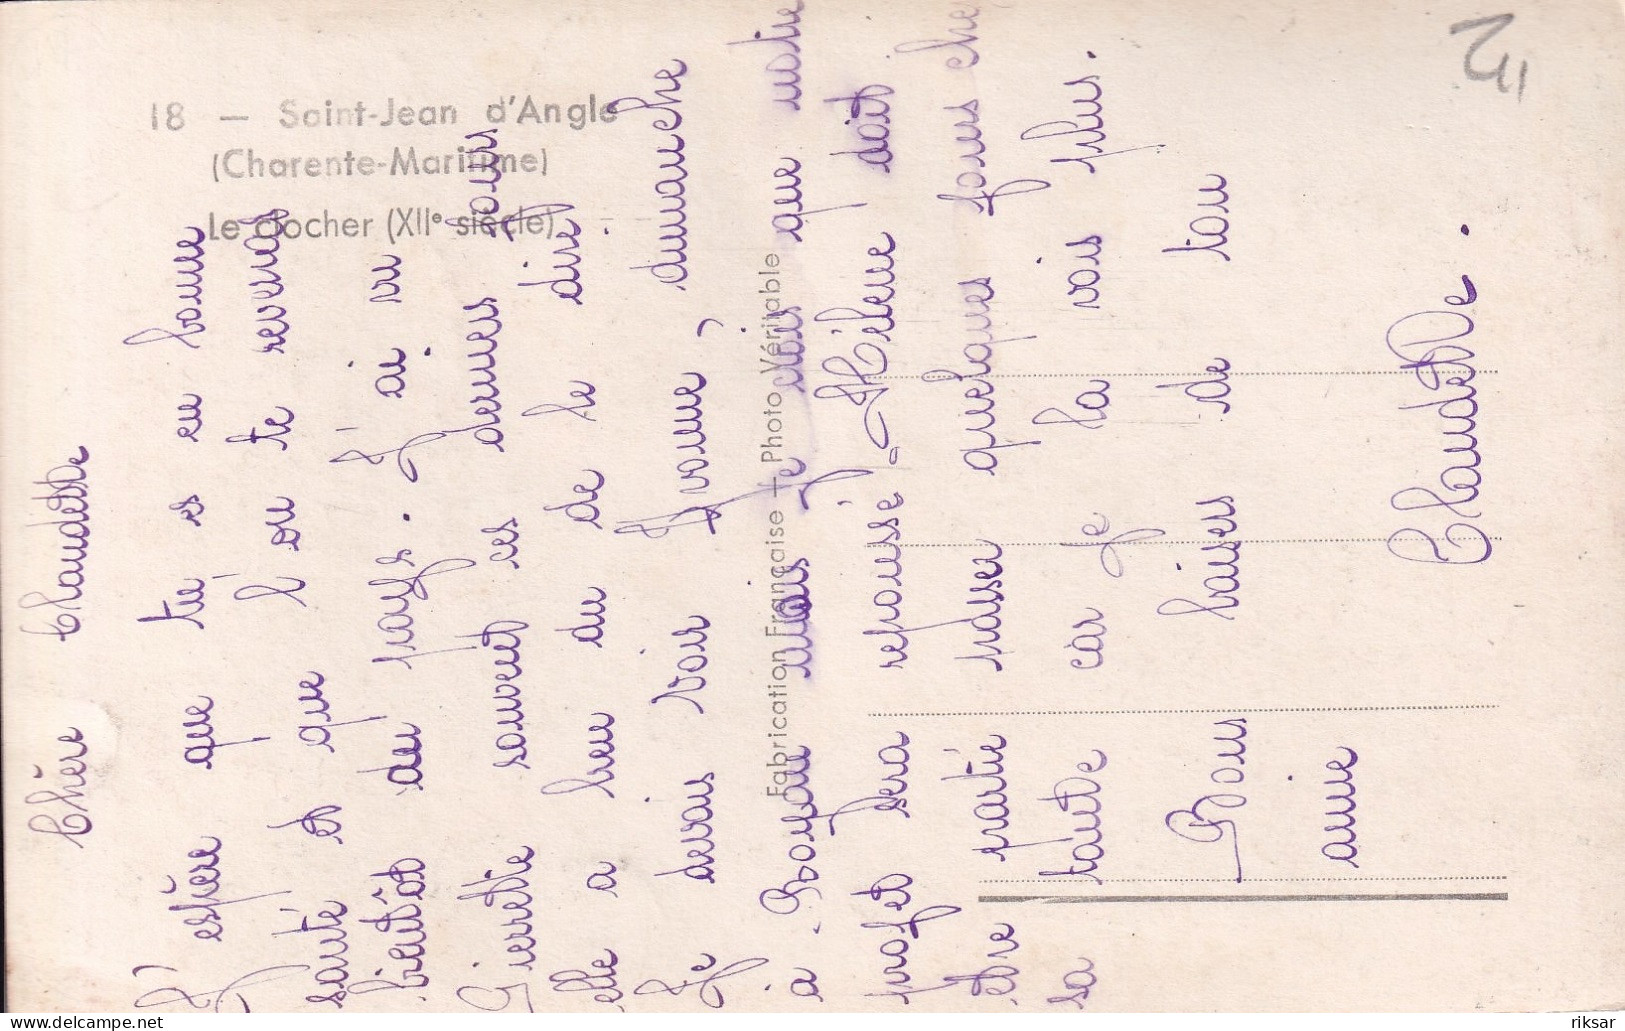 18 — Saint-Jean d'Angle
(Charente-Maritime)
Le clocher (XIIe siècle)
Fabrication Française - Photo Véritable
Chère Claudette
J'espère que tu es en bonne
santé et que l'on te reverra
bientôt au pays. J'ai vu
Pierrette souvent ces derniers jours
elle a bien du de le dire.
Je devais voir Yvonne, dimanche
à Royan mais je crois que notre
projet sera repoussé. Hélène doit
être partie passer quelques jours chez
sa tante car je la vois plus.
Bons baisers de ton
amie
Claudette.
delcampe.net
riksar